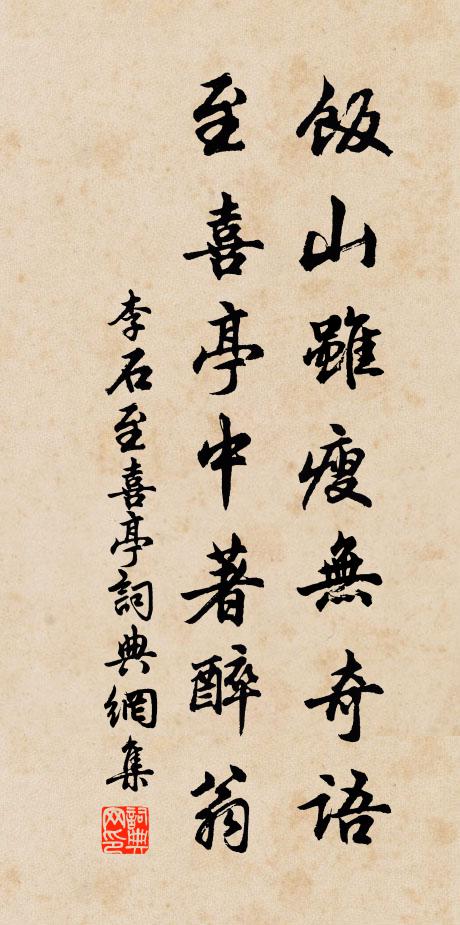 飯山雖瘦無奇語
至喜亭中著醉翁
李石至喜亭詞典網集
詞典網印